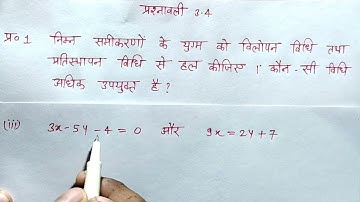 प्रश्नावली 3.4
प्र० 1 निम्न समीकरणों के युग्म को विलोपन विधि तथा
प्रतिस्थापन विधि से हल कीजिए । कौन-सी विधि
अधिक उपयुक्त है ?
(iii) 3x-5y-4=0 और 9x=2y+7